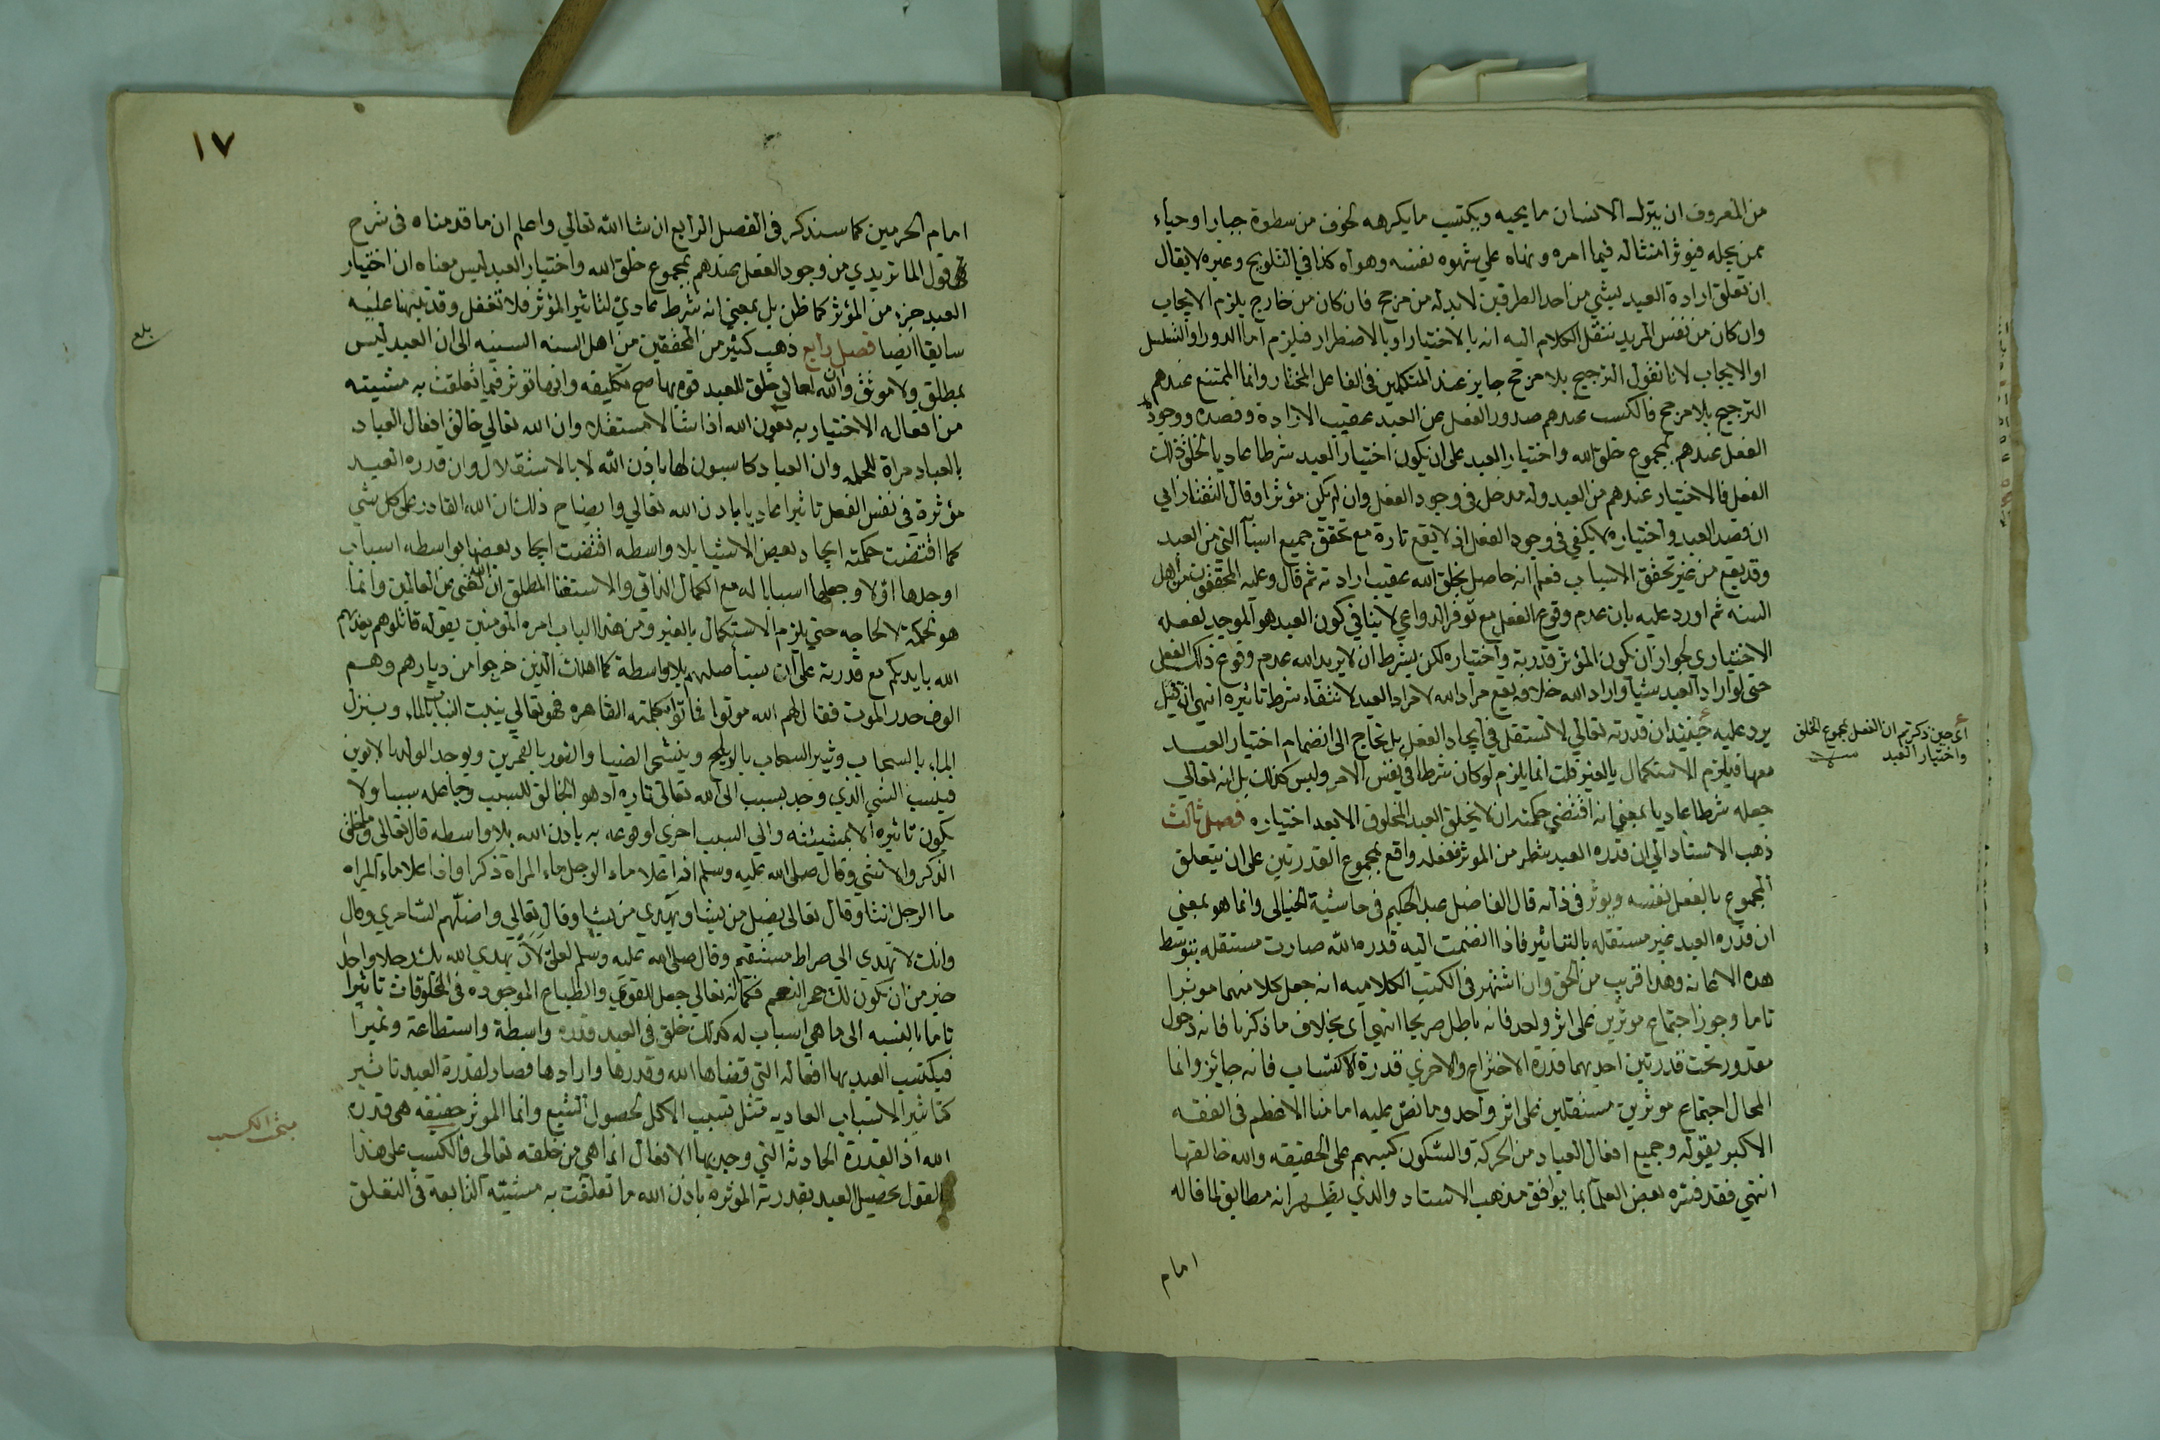 من المعروف ان يترك الانسان ما يحبه ويكتسب ما يكرهه لخوف من سطوة جبار او حياء
ممن يجله فيؤثر امتثاله فيما امره ونهاه على شهوه نفسه وهواه كذا في التلويح وغيره لا يقال
ان تعلق ارادة العبد بشي من احد الطرفين لابد له من مرجح فان كان من خارج يلزم الايجاب
وان كان من نفس المريد ننقل الكلام اليه انه بالاختيار او بالاضطرار فيلزم اما الدور او التسلسل
او الايجاب لانا نقول الترجيح بلا مرجح جايز عند المتكلمين في الفاعل المختار وانما الممتنع عندهم
الترجيح بلا مرجح فالكسب عندهم صدور الفعل عن العبد عقيب الارادة وقصده ووجود
الفعل عندهم بمجموع خلق الله واختيار العبد على ان يكون اختيار العبد شرطا عاديا لخلق ذلك
الفعل فالاختيار عندهم من العبد وله مدخل في وجود الفعل وان لم يكن مؤثرا وقال التفتازاني
ان قصد العبد واختياره لا يكفي في وجود الفعل اذ لا يقع تارة مع تحقق جميع اسبابه التي من العبد
وقد يقع من غير تحقق الاسباب فعلم انه حاصل بخلق الله عقيب ارادته ثم قال وعليه المحققون من اهل
السنه ثم اورد عليه بان عدم وقوع الفعل مع توفر الدواعي لا ينافي كون العبد هو الموجد لفعله
الاختياري لجواز ان يكون المؤثر قدرته واختياره لكن بشرط ان لا يريد الله عدم وقوع ذلك الفعل
حتى لو اراد العبد شيأ واراد الله خلافه يقع مراد الله لا مراد العبد لانتفاء شرط تاثيره انتهى فان قيل
يرد عليه حينئذ ان قدرته تعالي لا تستقل في ايجاد الفعل بل تحتاج الى انضمام اختيار العبد
معها فيلزم الاستكمال بالغير قلت انما يلزم لو كان شرطا في نفس الامر وليس كذلك بل انه تعالي
جعله شرطا عاديا بمعني انه اقتضي حكمته ان لا يخلق العبد المخلوق الا بعد اختياره فصل ثالث
ذهب الاستاد الي ان قدره العبد شطر من الموثر ففعله واقع بمجموع القدرتين على ان يتعلق
المجموع بالفعل نفسه ويوثر في ذاته قال الفاضل عبد الحكيم في حاشية الخيالي وانما هو بمعني
ان قدره العبد غير مستقله بالتاثير فاذا انضمت اليه قدره الله صارت مستقله بتوسط
هذه الاعانه وهذا قريب من الحق وان اشتهر في الكتب الكلاميه انه جعل كلا منهما موثرا
تاما وجوز اجتماع موثرين على اثر واحد فانه باطل صريحا انتهي اي بخلاف ما ذكرنا فانه دخول
مقدور تحت قدرتين احديهما قدرة الاختراع والاخري قدرة الاكتساب فانه جائز وانما
المحال اجتماع موثرين مستقلين على اثر واحد وما نص عليه امامنا الاعظم في الفقه
الاكبر بقوله وجميع افعال العباد من الحركة والسكون كسبهم على الحقيقه والله خالقها
انتهي فقد فسره بعض العلما بما يوافق مذهب الاستاد والذي يظهر انه مطابق لما قاله
امام
اي حين ذكرتم ان الفعل بمجموع الخلق
واختيار العبد
١٧
امام الحرمين كما سنذكر في الفصل الرابع ان شا الله تعالي واعلم ان ما قدمناه في شرح
قول الماتريدي من وجود الفعل عندهم بمجموع خلق الله واختيار العبد ليس معناه ان اختيار
العبد جزء من المؤثر كما ظن بل بمعني انه شرط عادي لتاثير المؤثر فلا تغفل وقد نبهنا عليه
سابقا ايضا فصل رابع ذهب كثير من المحققين من اهل السنه السنيه الى ان العبد ليس
بمطلق ولا موثق وان الله تعالي خلق للعبد قوه بها صح تكليفه وانها توثر فيما تعلقت به مشيته
من افعاله الاختياريه بعون الله اذا شا لا مستقله وان الله تعالي خالق افعال العباد
بالعباد مراة للحمله وان العباد كاسبون لها باذن الله لا بالاستقلال وان قدره العبد
مؤثرة في نفس الفعل تاثيرا عاديا باذن الله تعالي وايضاح ذلك ان الله القادر على كل شي
كما اقتضت حكمته ايجاد بعض الاشيا بلا واسطه اقتضت ايجاد بعضها بواسطه اسباب
اوجدها اولا وجعلها اسبابا له مع الكمال الذاتي والاستغنا المطلق ان الله لغني عن العالمين وانما
هو لحكمة لا لحاجه حتي يلزم الاستكمال بالغير ومن هذا الباب امره المؤمنين بقوله قاتلوهم يعذبهم
الله بايديكم مع قدرته على ان يستأصلهم بلا واسطة كما اهلك الذين خرجوا من ديارهم وهم
الوف حدر الموت فقال لهم الله موتوا فماتوا بكلمته القاهره فهو تعالي ينبت النبات بالماء وينزل
الماء بالسحاب ويثير السحاب بالريح وينشئ الضيا والنور بالقمرين ويوجد الولد بالابوين
فينسب الشي الذي وجد بسبب الى الله تعالى تاره اذ هو الخالق للسبب وجاعله سببا ولا
يكون تاثيره الا بمشيئته والي السبب اخرى لوقوعه به باذن الله بلا واسطه قال تعالي وما خلق
الذكر والانثي وقال صلى الله عليه وسلم اذا علا ماء الرجل ماء المراة ذكرا واذا علا ماء المراه
ماء الرجل انثا وقال تعالى يضل من يشا ويهدي من يشا وقال تعالي واضلهم السامري وقال
وانك لا تهدى الى صراط مستقيم وقال صلى الله عليه وسلم لعلي لان يهدي الله بك رجلا واحدا
خير من ان تكون لك حمر النعم فكما انه تعالي جعل للقوي والطباع الموجوده في المخلوقات تاثيرا
تاما بالنسبه الى ما هي اسباب له كذلك خلق في العبد قدره واسطة واستطاعة وتميزا
فيكتسب العبد بها افعاله التي قضاها الله وقدرها وارادها فصار لقدرة العبد تاثير
كتاثير الاسباب العاديه مثل تسبب الاكل لحصول الشبع وانما الموثر حقيقة هي قدره
الله اذ القدرة الحادثه التي وجد بها الافعال انما هي من خلقه تعالى فالكسب على هذا
القول تحصيل العبد بقدرته الموثره باذن الله ما تعلقت به مشيته التابعة في التعلق
بلغ